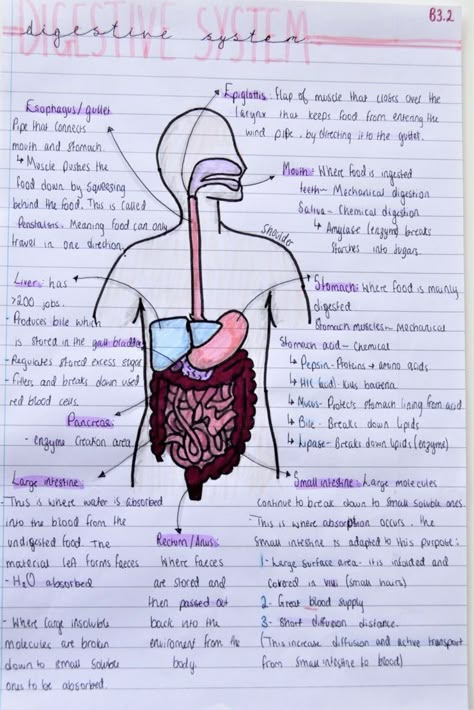 B3.2
DIGESTIVE SYSTEM
digestive system
Esophagus/gullet
Pipe that connects
mouth and stomach.
↳ Muscle pushes the
food down by squeezing
behind the food. This is called
Peristalsis. Meaning food can only
travel in one direction.
Epiglottis: Flap of muscle that closes over the
larynx that keeps food from entering the
wind pipe, by directing it to the gullet.
Mouth: Where food is ingested
teeth - Mechanical digestion
Saliva - Chemical digestion
↳ Amylase (enzyme) breaks
starches into sugars.
Shoulder
Liver: has
>200 jobs.
- Produces bile which
is stored in the gall bladder
- Regulates stored excess sugar
- Filters and breaks down used
red blood cells.
Stomach: Where food is mainly
digested
Stomach muscles - Mechanical
Stomach acid - Chemical
↳ Pepsin - Proteins → amino acids
↳ HCl (acid) - Kills bacteria
↳ Mucus - Protects stomach lining from acid
↳ Bile - Breaks down lipids
↳ Lipase - Breaks down lipids (enzyme)
Pancreas:
- enzyme creation area
Large intestine
- This is where water is absorbed
into the blood from the
undigested food. The
material left forms faeces
- H2O absorbed
- Where large insoluble
molecules are broken
down to small soluble
ones to be absorbed.
Rectum/Anus:
Where faeces
are stored and
then passed out
back into the
enviroment from the
body.
Small intestine: Large molecules
continue to break down to small soluble ones.
This is where absorption occurs. The
small intestine is adapted to this purpose:
1- Large surface area - it is infolded and
covered in villi (small hairs)
2- Great blood supply
3- Short diffusion distance.
(This increase diffusion and active transport
from small intestine to blood)